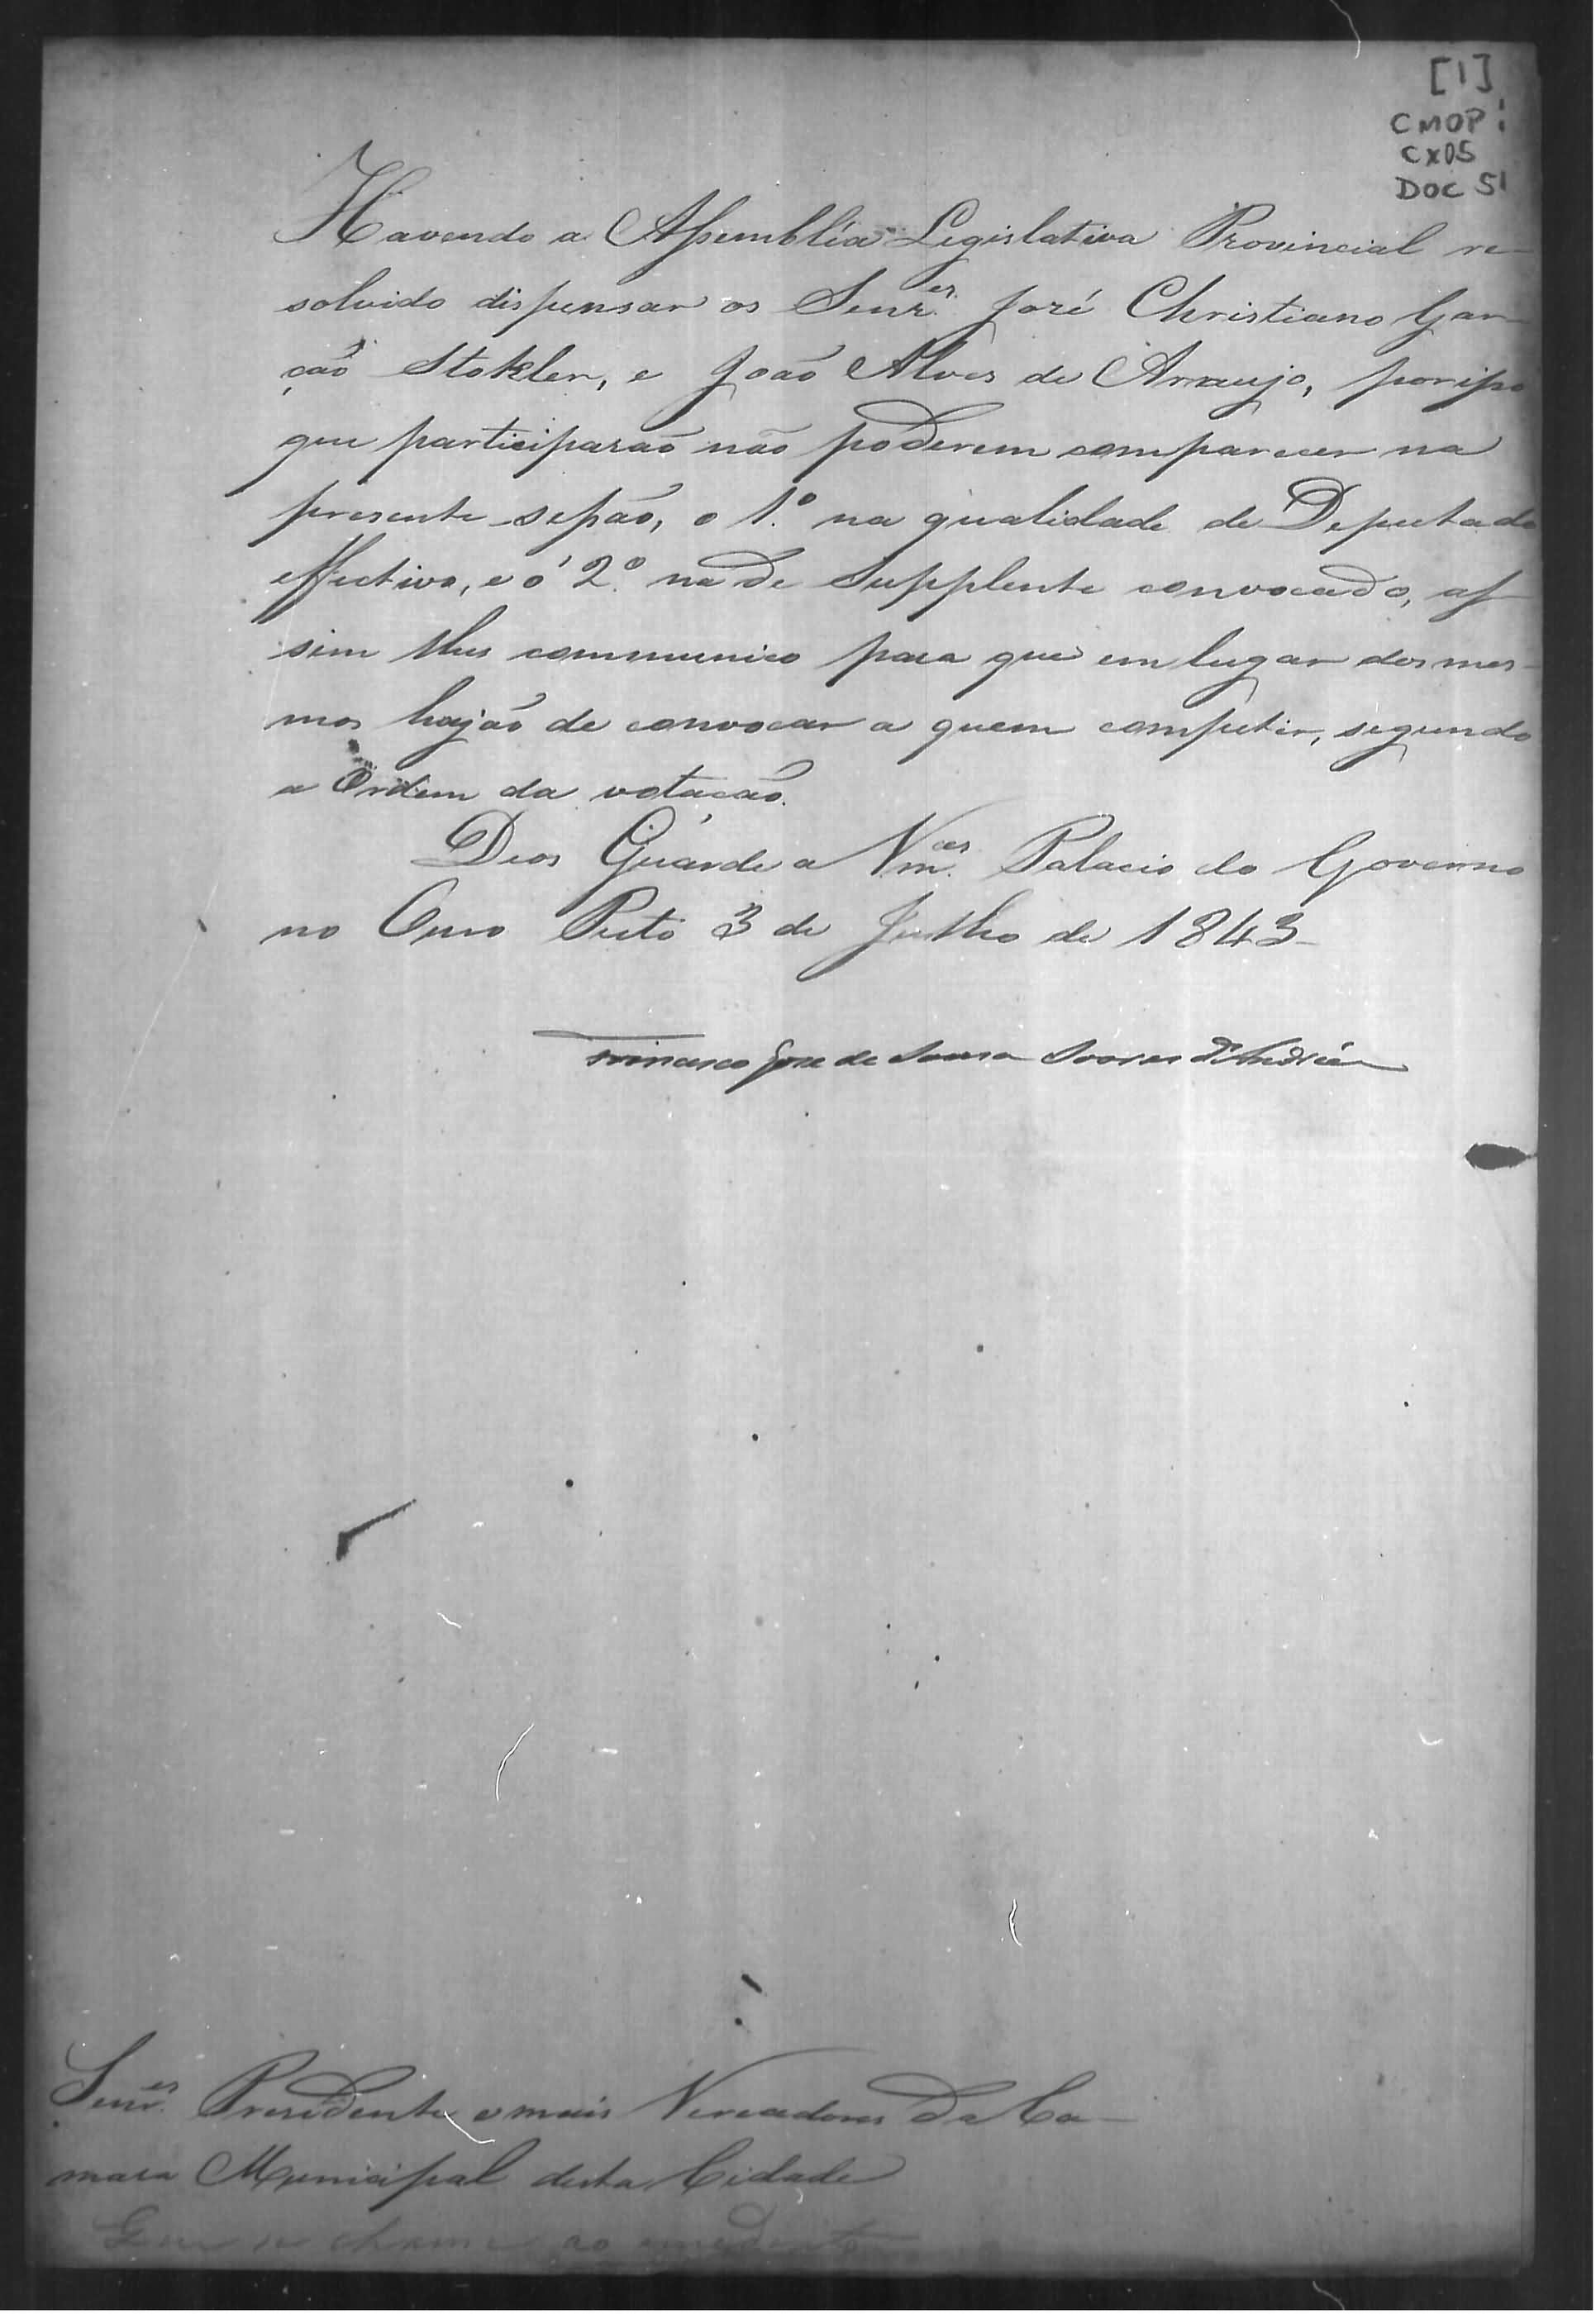 [1]
CMOP
CX05
DOC 51
Havendo a Assembléa Legislativa Provincial re-
solvido dispensar os Senr.es José Christiano Gar-
ção Stokler, e João Alves de Araujo, porisso
que participarão não poderem comparecer na
presente sessão, o 1.º na qualidade de Deputado
effectivo, e o 2.º na de Supplente convocado, as-
sim lhes communico para que em lugar dos mes-
mos hajão de convocar a quem competir, segundo
a Ordem da votação.
Deos Guarde a Vm.ces Palacio do Governo
no Ouro Preto 3 de Julho de 1843
Francisco José de Sousa Soares d'Andréa
Senr.es Presidente e mais Vereadores da Ca-
mara Municipal desta Cidade
ao